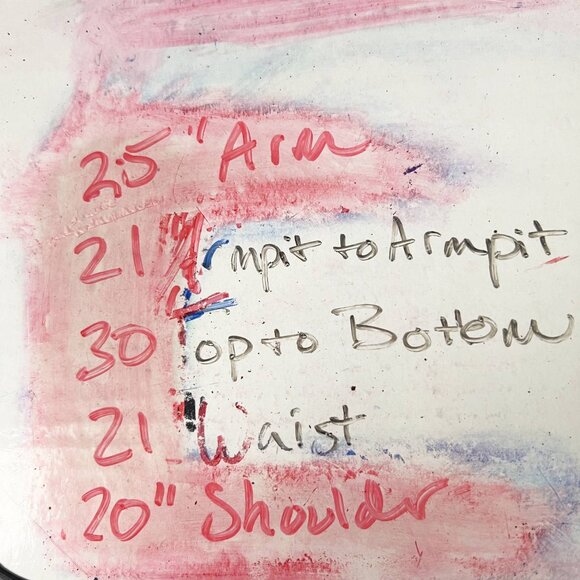 25" Arm
21" Armpit to Armpit
30 Top to Bottom
21" Waist
20" Shoulder